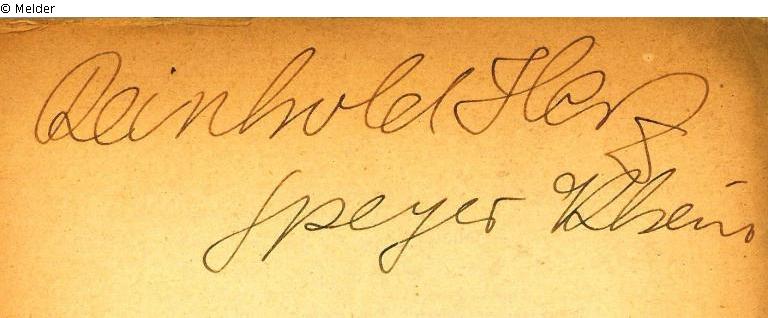 © Melder
Reinhold Herz
Speyer Rhein